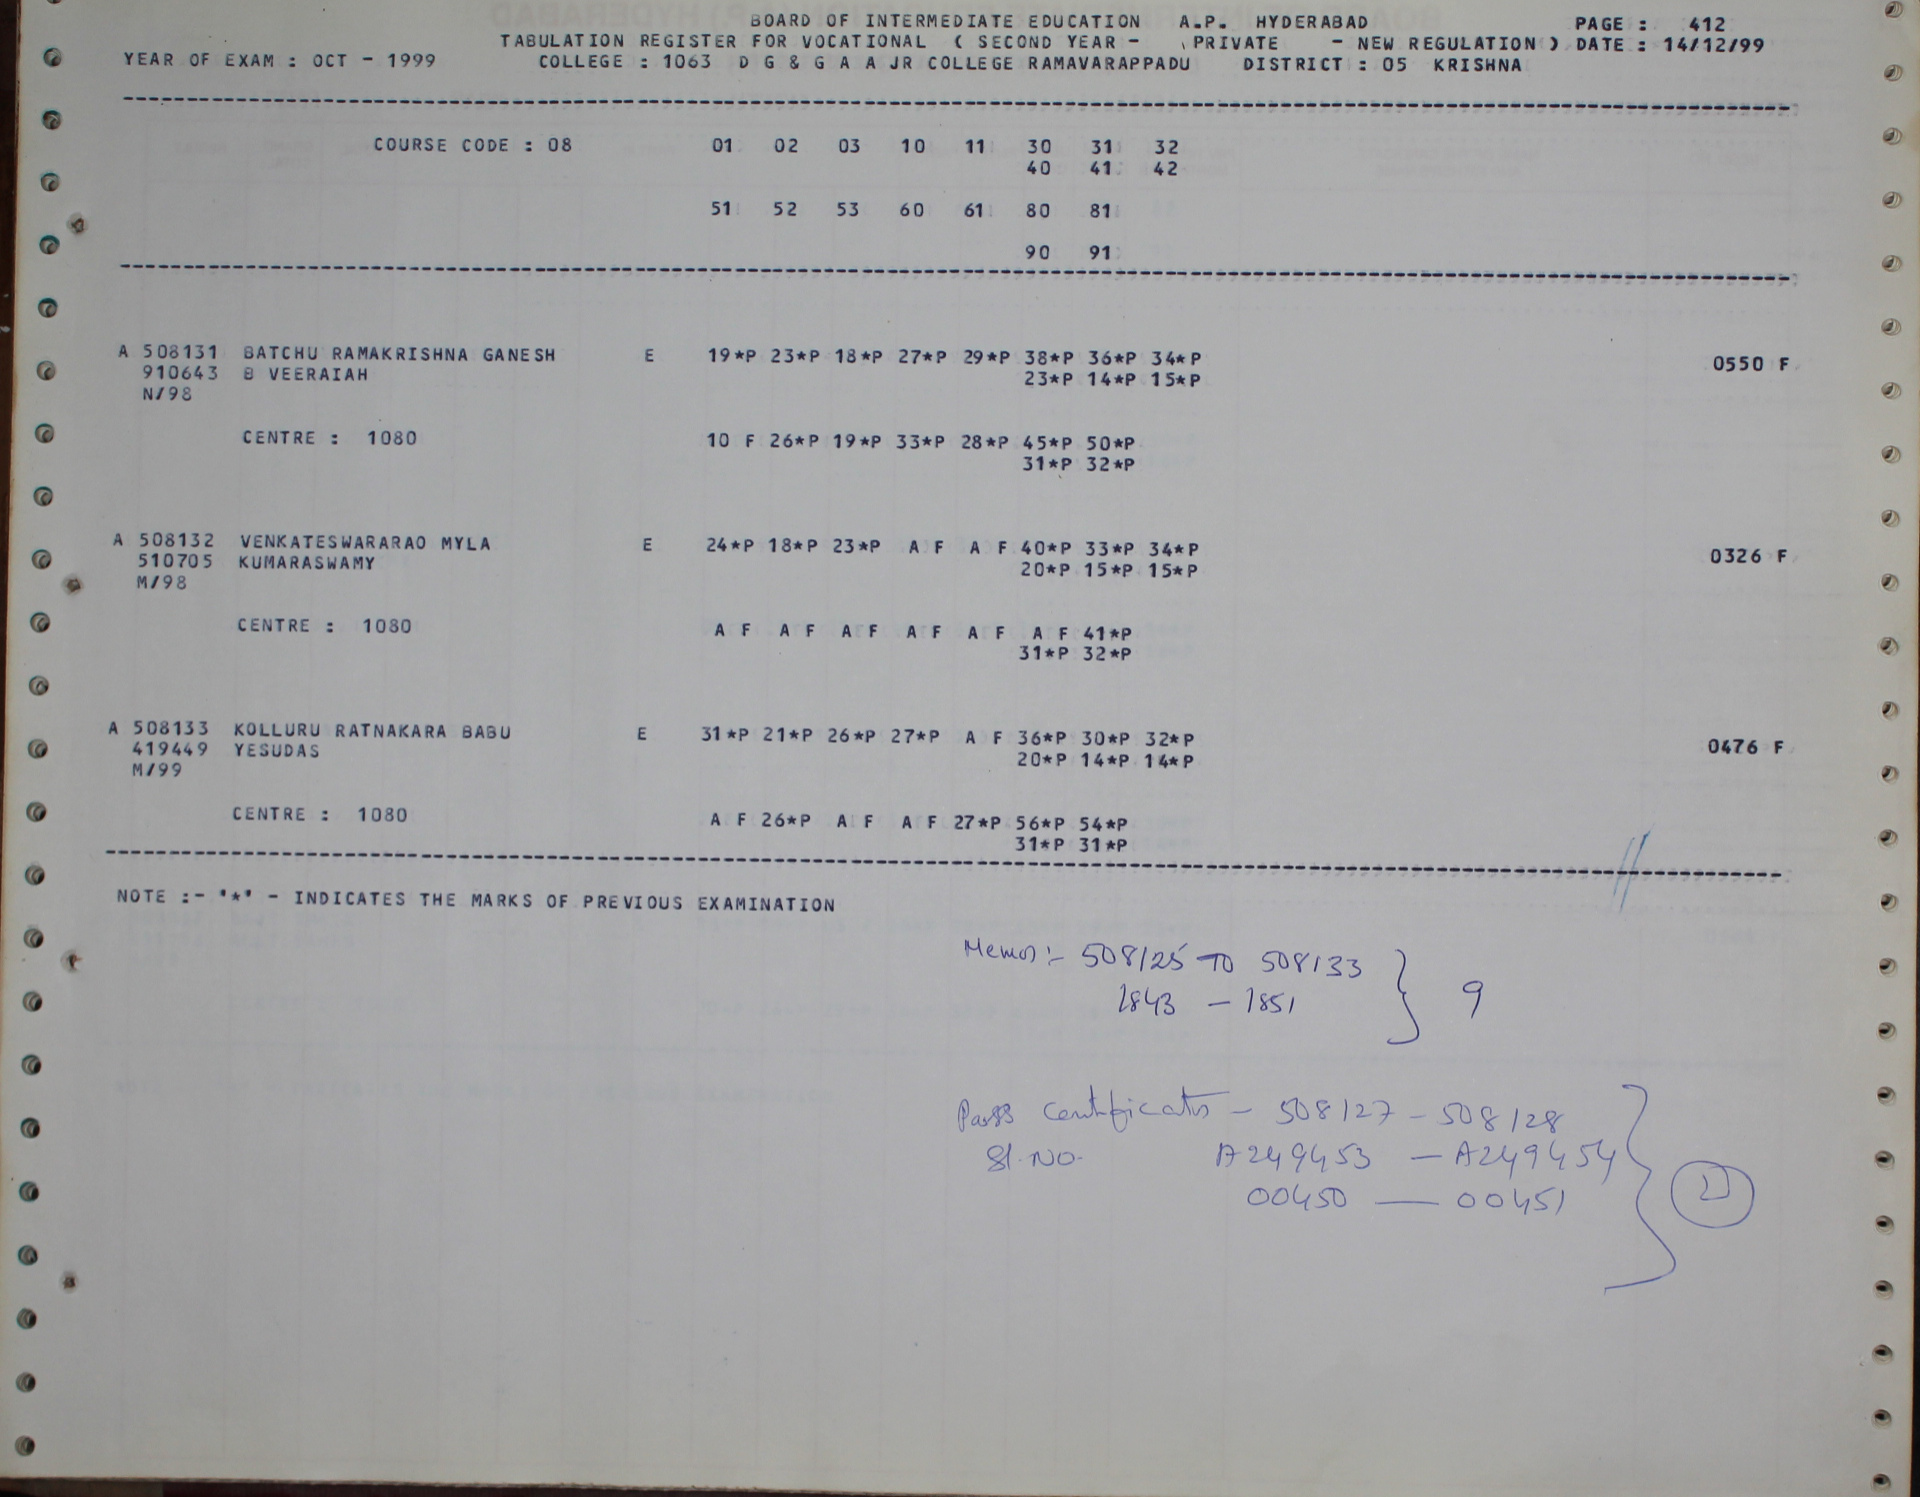 BOARD OF INTERMEDIATE EDUCATION A.P. HYDERABAD PAGE : 412
TABULATION REGISTER FOR VOCATIONAL ( SECOND YEAR - PRIVATE - NEW REGULATION ) DATE : 14/12/99
YEAR OF EXAM : OCT - 1999 COLLEGE : 1063 D G & G A A JR COLLEGE RAMAVARAPPADU DISTRICT : 05 KRISHNA
COURSE CODE : 08 01 02 03 10 11 30 31 32
40 41 42
51 52 53 60 61 80 81
90 91
A 508131 BATCHU RAMAKRISHNA GANESH E 19*P 23*P 18*P 27*P 29*P 38*P 36*P 34*P 0550 F
910643 B VEERAIAH 23*P 14*P 15*P
N/98
CENTRE : 1080 10 F 26*P 19*P 33*P 28*P 45*P 50*P
31*P 32*P
A 508132 VENKATESWARARAO MYLA E 24*P 18*P 23*P A F A F 40*P 33*P 34*P 0326 F
510705 KUMARASWAMY 20*P 15*P 15*P
M/98
CENTRE : 1080 A F A F A F A F A F A F 41*P
31*P 32*P
A 508133 KOLLURU RATNAKARA BABU E 31*P 21*P 26*P 27*P A F 36*P 30*P 32*P 0476 F
419449 YESUDAS 20*P 14*P 14*P
M/99
CENTRE : 1080 A F 26*P A F A F 27*P 56*P 54*P
31*P 31*P
NOTE :- "*" - INDICATES THE MARKS OF PREVIOUS EXAMINATION
Memos:- 508125 TO 508133
1843 - 1851 } 9
Pass Certificates - 508127 - 508128
Sl. No. A249453 - A249454
00450 — 00451